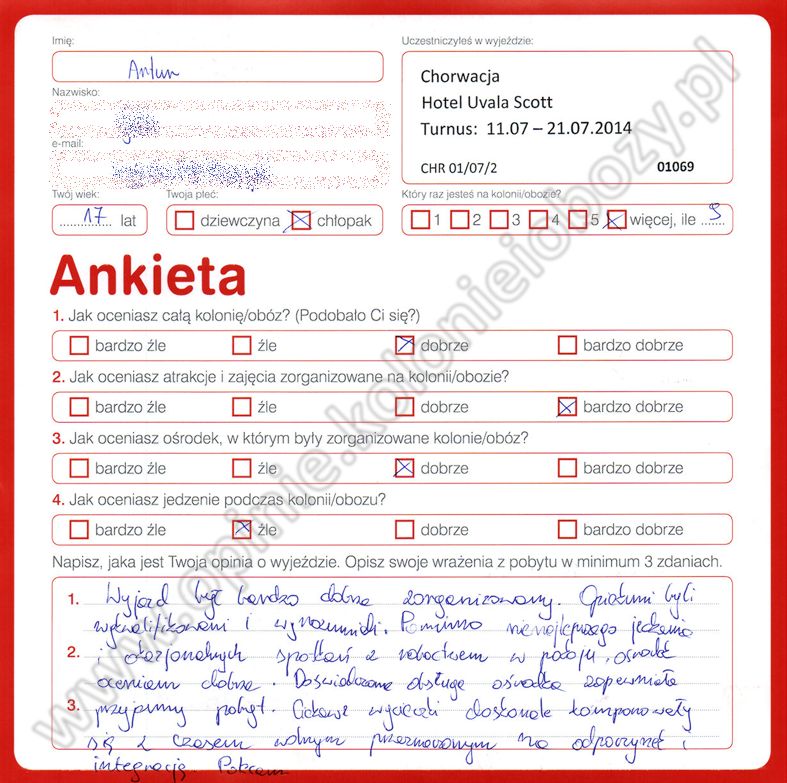 Imię:
Antun
Nazwisko:
e-mail:
Twój wiek:
17 lat
Twoja płeć:
dziewczyna chłopak
Uczestniczyłeś w wyjeździe:
Chorwacja
Hotel Uvala Scott
Turnus: 11.07 – 21.07.2014
CHR 01/07/2 01069
Który raz jesteś na kolonii/obozie?
1 2 3 4 5 więcej, ile 9
Ankieta
1. Jak oceniasz całą kolonię/obóz? (Podobało Ci się?)
bardzo źle źle dobrze bardzo dobrze
2. Jak oceniasz atrakcje i zajęcia zorganizowane na kolonii/obozie?
bardzo źle źle dobrze bardzo dobrze
3. Jak oceniasz ośrodek, w którym były zorganizowane kolonie/obóz?
bardzo źle źle dobrze bardzo dobrze
4. Jak oceniasz jedzenie podczas kolonii/obozu?
bardzo źle źle dobrze bardzo dobrze
Napisz, jaka jest Twoja opinia o wyjeździe. Opisz swoje wrażenia z pobytu w minimum 3 zdaniach.
1. Wyjazd był bardzo dobrze zorganizowany. Opiekunowie byli
wykwalifikowani i wyrozumiali. Pomimo nienajlepszego jedzenia
2. i okazjonalnych spotkań z robactwem w pokoju, ośrodek
oceniam dobrze. Doświadczona obsługa ośrodka zapewniała
3. przyjemny pobyt. Ciekawe wycieczki doskonale komponowały
się z czasem wolnym przeznaczonym na odpoczynek i
integrację. Polecam
www.opinie.kolonieiobozy.pl